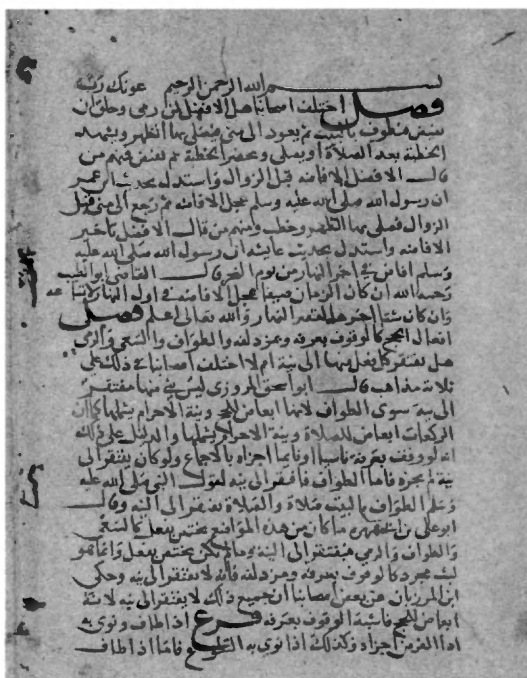 بسم الله الرحمن الرحيم عونك رب
فصل اختلف اصحابنا هل الافضل لمن رمى وحلق ان
يفيض فيطوف بالبيت ثم يعود الى منى فيصلي بها الظهر ويشهد
الخطبة بعد الصلاة او يصلي ويحضر الخطبة ثم يفيض فمنهم من
قال الافضل الافاضه قبل الزوال واستدل بحديث ابن عمر
ان رسول الله صلى الله عليه وسلم عجل الافاضه ثم رجع الى منى قبل
الزوال فصلى بها الظهر وخطب ومنهم من قال الافضل تاخير
الافاضه واستدل بحديث عايشه ان رسول الله صلى الله عليه
وسلم افاض في اخر النهار من يوم النحر قال القاضي ابو الطيب
رحمه الله ان كان الزمان صيفا عجل الافاضه في اول النهار
وان كان شتا اخر هلقصر النهار والله تعالى اعلم فصل
افعال الحج كالوقوف بعرفه وبمزدلفه والطواف والسعي والرمي
هل يفتقر كل فعل منها الى نية ام لا اختلف اصحابنا في ذلك على
ثلاثة مذاهب قال ابو اسحق المروزي ليس شي منها مفتقر
الى نية سوى الطواف لانها ابعاض للحج ونية الاحرام يشملها كما ان
الركعات ابعاض للصلاة ونية الاحرام يشملها والدليل على ذلك
انه لو وقف بعرفة ناسيا او نايما اجزاه بالاجماع ولو كان يفتقر الى
نية لم يجزه فاما الطواف فافتقر الى نيه لقول النبي صلى الله عليه
وسلم الطواف بالبيت صلاة والصلاة تفتقر الى النيه وقال
ابو علي بن ابي هريره ما كان من هذه المواضع يختص بفعل كالسعي
والطواف والرمي فيفتقر الى النية وما لم يكن يختص بفعل وانما هو
لبث مجرد كالوقوف بعرفه وبمزدلفه فانه لا يفتقر الى نيه وحكى
ابن المرزبان عن بعض اصحابنا ان جميع ذلك لا يفتقر الى نيه لانه
ابعاض للحج فاشبه الوقوف بعرفه فرع اذا طاف ونوى به
اداء الفرض اجزاه وكذلك اذا نوى به التطوع فاما اذا طاف